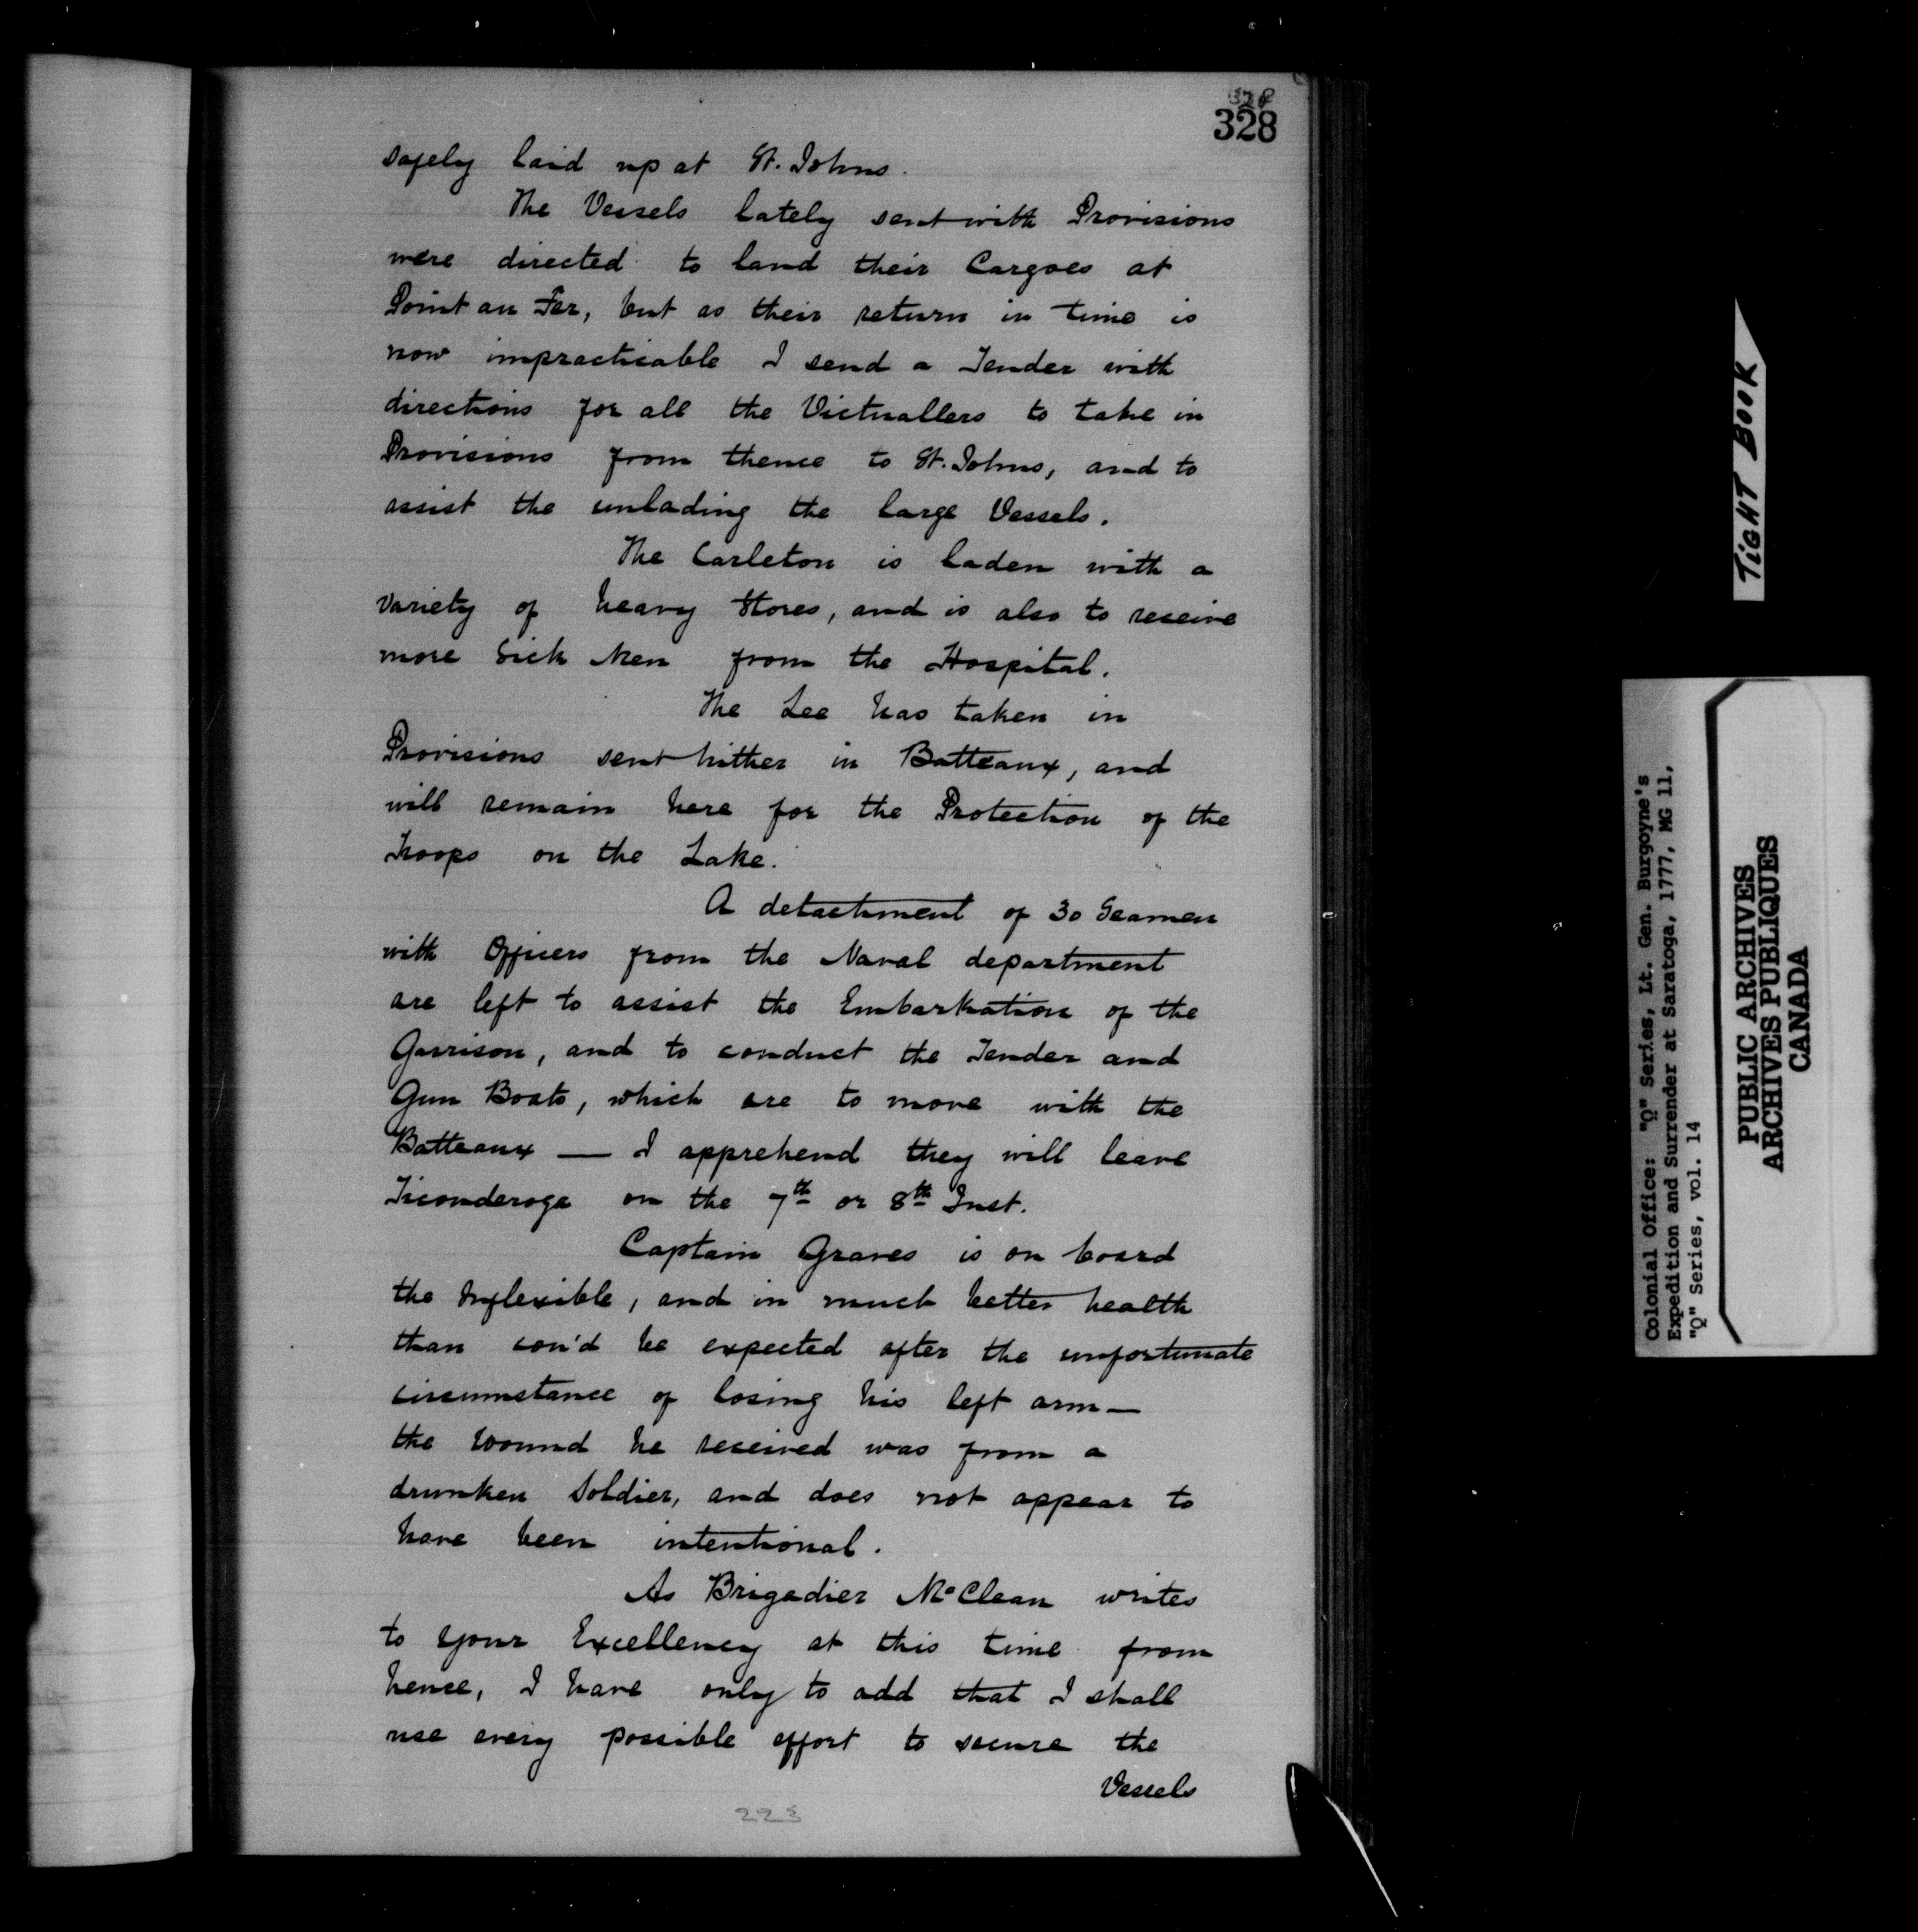 328
328
safely laid up at St. Johns.
The Vessels lately sent with Provisions
were directed to land their Cargoes at
Point au Fer, but as their return in time is
now impracticable I send a Tender with
directions for all the Victuallers to take in
Provisions from thence to St. Johns, and to
assist the unlading the large Vessels.
The Carleton is laden with a
variety of heavy Stores, and is also to receive
more Sick Men from the Hospital.
The Lee has taken in
Provisions sent hither in Batteaux, and
will remain here for the Protection of the
Troops on the Lake.
A detachment of 30 Seamen
with Officers from the Naval department
are left to assist the Embarkation of the
Garrison, and to conduct the Tender and
Gun Boats, which are to move with the
Batteaux — I apprehend they will leave
Ticonderoga on the 7th or 8th Inst.
Captain Graves is on board
the Inflexible, and in much better health
than cou'd be expected after the unfortunate
circumstance of losing his left arm —
the wound he received was from a
drunken Soldier, and does not appear to
have been intentional.
As Brigadier McClean writes
to your Excellency at this time from
hence, I have only to add that I shall
use every possible effort to secure the
Vessels
223
TIGHT BOOK
Colonial Office: "Q" Series, Lt. Gen. Burgoyne's
Expedition and Surrender at Saratoga, 1777, MG 11,
"Q" Series, vol. 14
PUBLIC ARCHIVES
ARCHIVES PUBLIQUES
CANADA